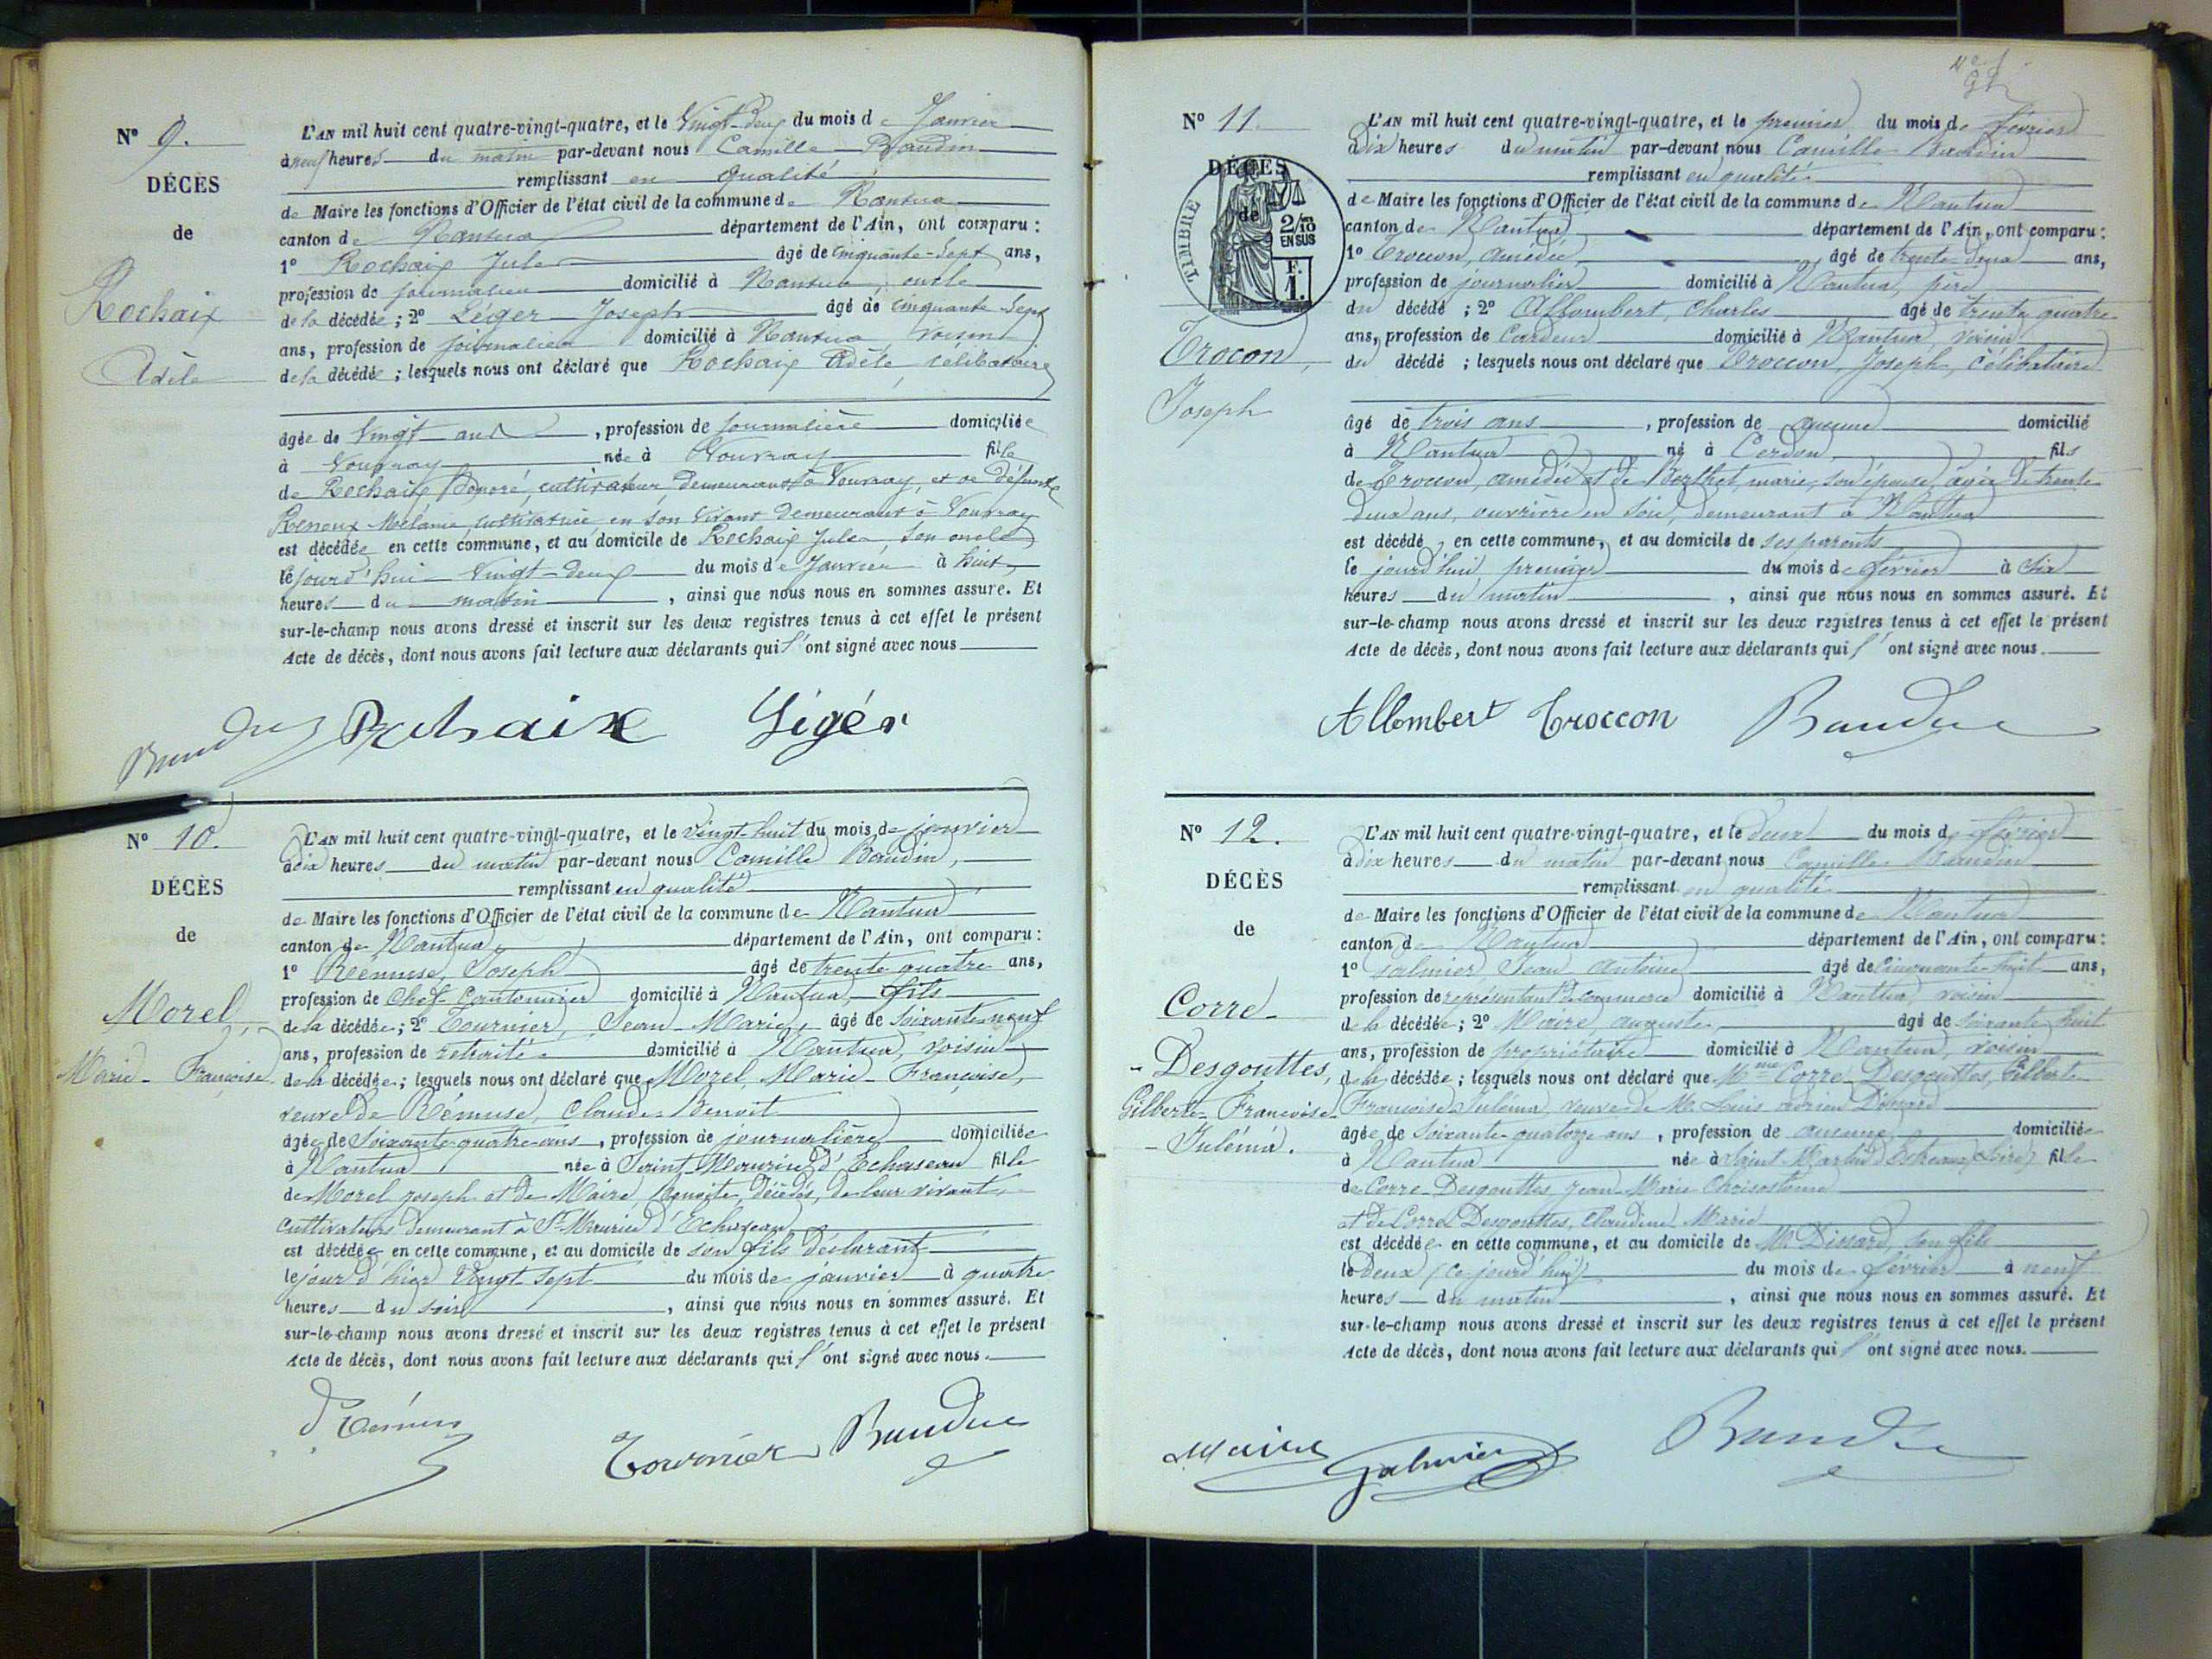 Nº 9.
DÉCÈS
de
Rochaix
Adèle
L'AN mil huit cent quatre-vingt-quatre, et le Vingt-deux du mois de Janvier
à neuf heures du matin par-devant nous Camille Baudin
remplissant en qualité
de Maire les fonctions d'Officier de l'état civil de la commune de Nantua
canton de Nantua département de l'Ain, ont comparu :
1º Rochaix Jules âgé de cinquante-sept ans,
profession de journalier domicilié à Nantua, oncle
de la décédée ; 2º Léger Joseph âgé de cinquante sept
ans, profession de journalier domicilié à Nantua, voisin
de la décédée ; lesquels nous ont déclaré que Rochaix Adèle, célibataire
âgée de Vingt ans , profession de journalière domiciliée
à Vouvray née à Vouvray fille
de Rochaix Honoré, cultivateur demeurant à Vouvray, et de défunte
Mélanie, cultivatrice en son vivant demeurant à Vouvray
est décédée en cette commune, et au domicile de Rochaix Jules, son oncle
le jourd'hui Vingt-deux du mois de Janvier à huit
heures du matin , ainsi que nous nous en sommes assuré. Et
sur-le-champ nous avons dressé et inscrit sur les deux registres tenus à cet effet le présent
Acte de décès, dont nous avons fait lecture aux déclarants qui l'ont signé avec nous
Baudin Rochaix Légér
Nº 10.
DÉCÈS
de
Morel,
Marie-Françoise
L'AN mil huit cent quatre-vingt-quatre, et le Vingt-huit du mois de janvier
à dix heures du matin par-devant nous Camille Baudin,
remplissant en qualité
de Maire les fonctions d'Officier de l'état civil de la commune de Nantua
canton de Nantua, département de l'Ain, ont comparu :
1º Rémuse, Joseph âgé de trente quatre ans,
profession de Chef Cantonnier domicilié à Nantua, fils
de la décédée; 2º Tournier, Jean-Marie, âgé de soixante neuf
ans, profession de retraité domicilié à Nantua, voisin
de la décédée; lesquels nous ont déclaré que Morel, Marie-Françoise,
veuve de Rémuse, Claude-Benoit
âgée de soixante-quatre ans , profession de journalière domiciliée
à Nantua née à Saint-Maurice d'Echazeau fille
de Morel Joseph et de Maire Benoite, décédés, de leur vivant,
cultivateurs demeurant à St-Maurice d'Echazeau
est décédée en cette commune, et au domicile de son fils déclarant
le jour d'hier Vingt sept du mois de janvier à quatre
heures du soir , ainsi que nous nous en sommes assuré. Et
sur-le-champ nous avons dressé et inscrit sur les deux registres tenus à cet effet le présent
Acte de décès, dont nous avons fait lecture aux déclarants qui l'ont signé avec nous.
Tournier Baudin
Nº 11.
DÉCÈS
de
TIMBRE
2/10
EN SUS
F.
1.
Trocon,
Joseph
L'AN mil huit cent quatre-vingt-quatre, et le premier du mois de février
à dix heures du matin par-devant nous Camille Baudin
remplissant en qualité
de Maire les fonctions d'Officier de l'état civil de la commune de Nantua
canton de Nantua département de l'Ain, ont comparu :
1º Troccon, Amédée, âgé de trente-deux ans,
profession de journalier domicilié à Nantua, père
du décédé ; 2º Allombert, Charles âgé de trente quatre
ans, profession de Cardeur domicilié à Nantua, voisin
du décédé ; lesquels nous ont déclaré que Troccon, Joseph, célibataire
âgé de trois ans , profession de aucune domicilié
à Nantua né à Cerdon fils
de Troccon, Amédée et de Berthet, Marie, son épouse, âgée de trente-
deux ans, ouvrière en soie, demeurant à Nantua
est décédé, en cette commune, et au domicile de ses parents
le jourd'hui premier du mois de février à six
heures du matin , ainsi que nous nous en sommes assuré. Et
sur-le-champ nous avons dressé et inscrit sur les deux registres tenus à cet effet le présent
Acte de décès, dont nous avons fait lecture aux déclarants qui l'ont signé avec nous.
Allombert Troccon Baudin
Nº 12.
DÉCÈS
de
Corre-
-Desgouttes,
Gilberte-Françoise-
-Juléma.
L'AN mil huit cent quatre-vingt-quatre, et le deux du mois de février
à dix heures du matin par-devant nous Camille Baudin
remplissant en qualité
de Maire les fonctions d'Officier de l'état civil de la commune de Nantua
canton de Nantua département de l'Ain, ont comparu :
1º Galmier Jean Antoine âgé de cinquante-huit ans,
profession de représentant de commerce domicilié à Nantua, voisin
de la décédée ; 2º Maire, Auguste, âgé de soixante huit
ans, profession de propriétaire domicilié à Nantua, voisin
de la décédée ; lesquels nous ont déclaré que Mme Corre-Desgouttes, Gilberte
Françoise Juléma, veuve de Mr Louis Adrien Dissard
âgée de soixante-quatorze ans , profession de aucune domiciliée
à Nantua née à Saint Martin d'Estreaux (Loire) fille
de Corre-Desgouttes, Jean-Marie Chrisostome
et de Corre Desgouttes, Claudine Marie
est décédée en cette commune, et au domicile de Mr Dissard, son fils
le deux (ce jourd'hui) du mois de février à neuf
heures du matin , ainsi que nous nous en sommes assuré. Et
sur-le-champ nous avons dressé et inscrit sur les deux registres tenus à cet effet le présent
Acte de décès, dont nous avons fait lecture aux déclarants qui l'ont signé avec nous.
Maire Galmier Baudin